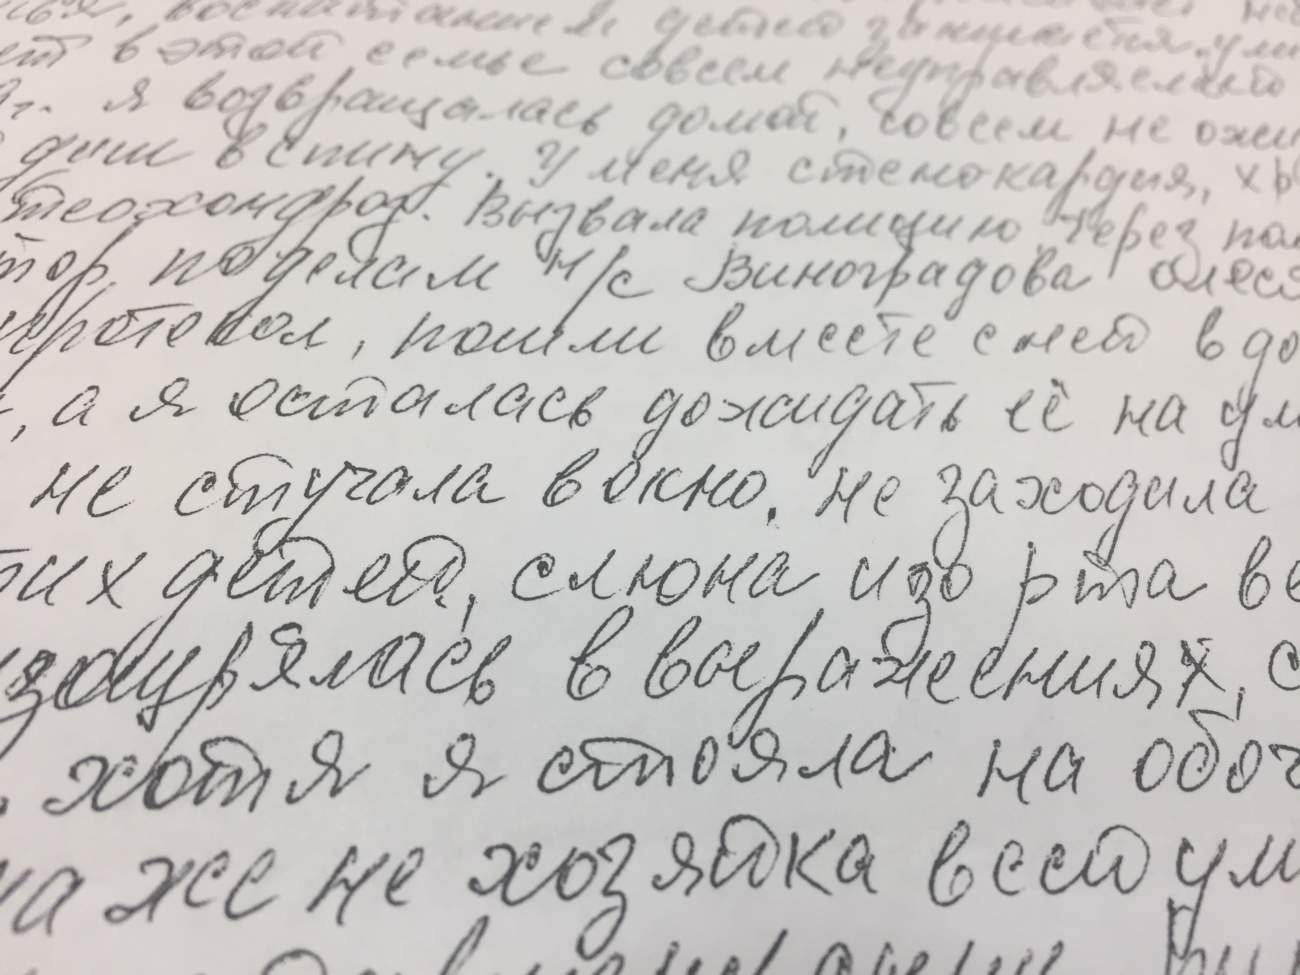 воспитанием детей занимается ули
в этой семье совсем неуправляемый
я возвращалась домой, совсем не ожи
в спину. У меня стенокардия, хр
теохондроз. Вызвала полицию, через пол
тор поделам н/с Виноградова Олеся
протокол, пошли вместе с ней в до
, а я осталась дожидать её на ул
не стучала в окно, не заходила
тих детей, слюна изо рта в
изощрялась в выражениях, с
. хотя я стояла на обоч
на же не хозяйка всей ул